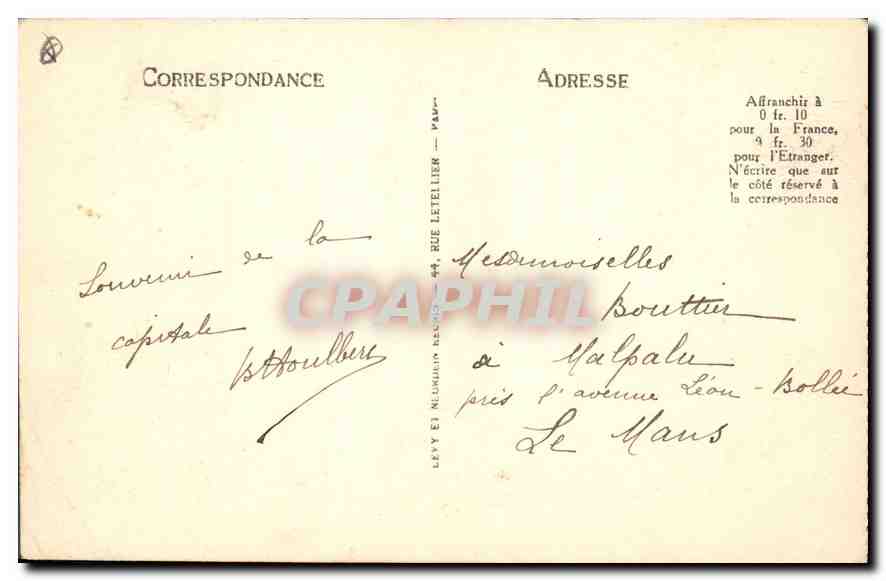 CORRESPONDANCE
ADRESSE
Affranchir à
0 fr. 10
pour la France,
0 fr. 30
pour l'Etranger.
N'écrire que sur
le côté réservé à
la correspondance
Souvenir de la
capitale
BHoulbert
LEVY ET NEURDEIN REUNIS — 44, RUE LETELLIER — PARIS
Mesdemoiselles
Bouttier
à Malpalu
près l'avenue Léon-Bollée
Le Mans
CPAPHIL